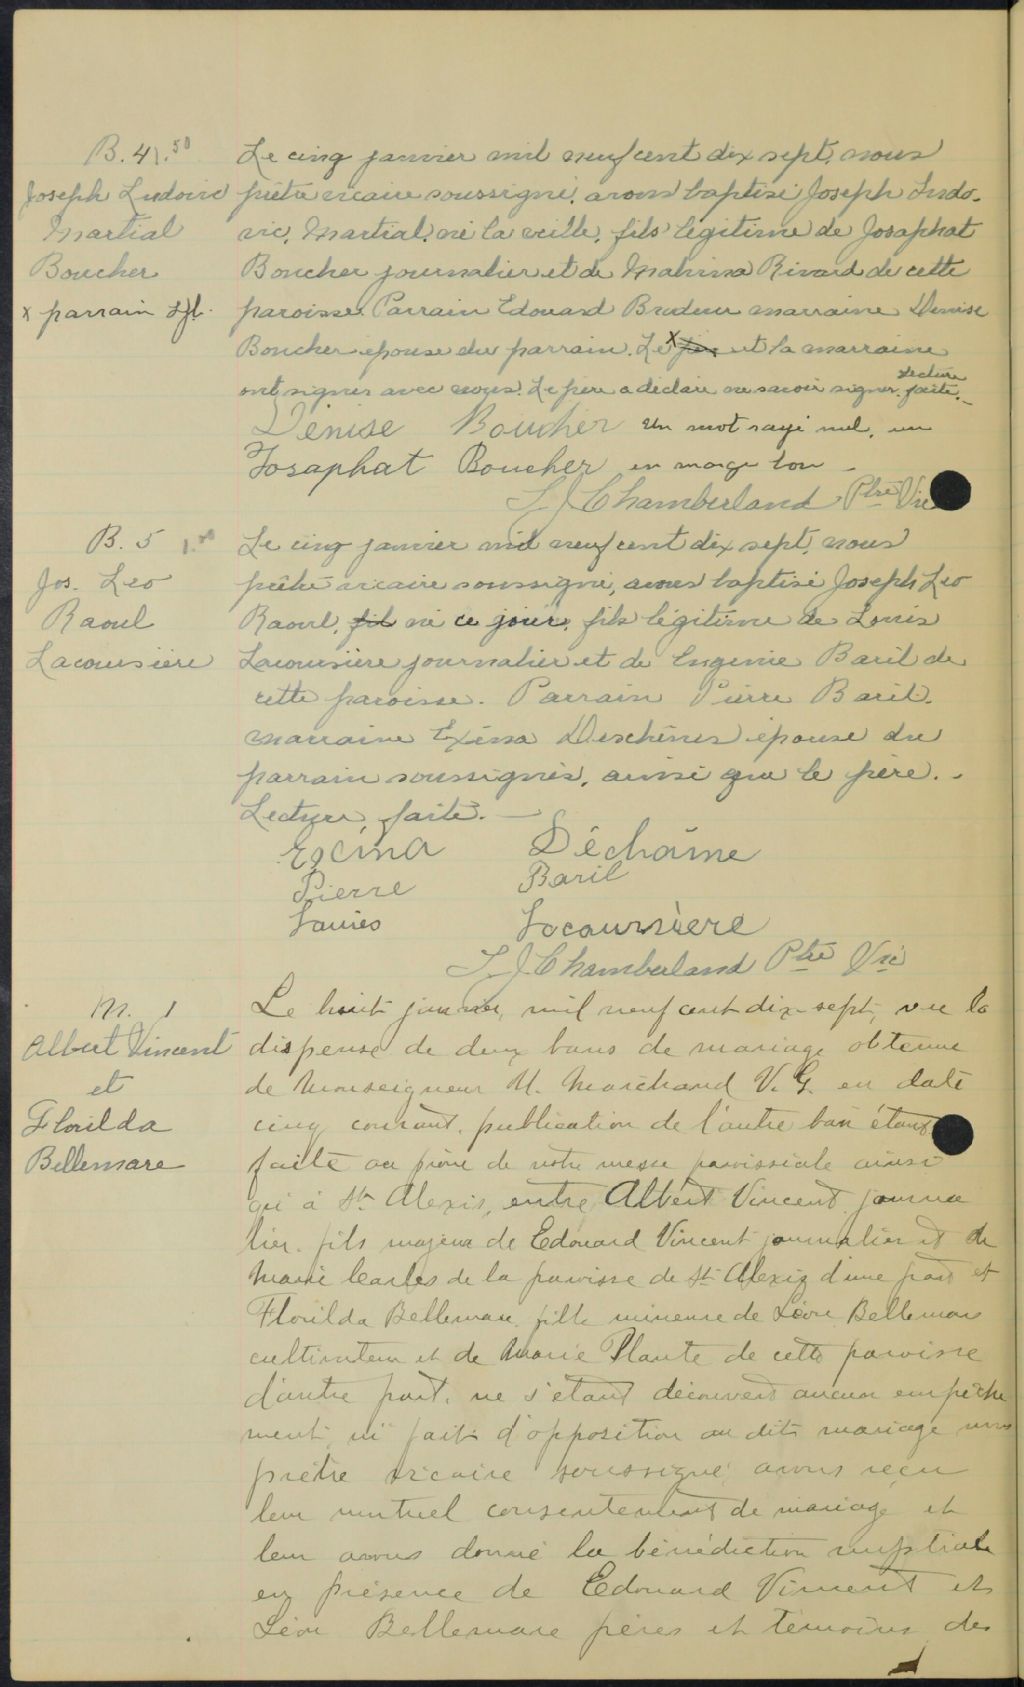 B. 4 1.50
Joseph Ludovic
Martial
Boucher
x parrain
Le cinq janvier mil neuf cent dix sept, nous
prêtre vicaire soussigné, avons baptisé Joseph Ludo-
vic, Martial, né la veille, fils légitime de Josaphat
Boucher journalier et de Malvina Rivard de cette
paroisse. Parrain Edouard Brodeur marraine Denise
Boucher épouse du parrain. Le x père et la marraine
ont signés avec nous. Le père a déclaré ne savoir signer. Lecture faite.-
Dénise Boucher un mot rayé nul, un
Josaphat Boucher en marge bon -
S. J. Chamberland Ptre Vic
B. 5 1.00
Jos. Leo
Raoul
Lacoursière
Le cinq janvier mil neuf cent dix sept, nous
prêtre vicaire soussigné, avons baptisé Joseph Leo
Raoul, fils né ce jour, fils légitime de Louis
Lacoursière journalier et de Eugenie Baril de
cette paroisse. Parrain Pierre Baril,
marraine Exina Deschênes épouse du
parrain soussignés, ainsi que le père. -
Lecture faite. —
Excina Déchaîne
Pierre Baril
Louies Locoursière
S. J. Chamberland Ptre Vic
M. 1
Albert Vincent
et
Florilda
Bellemare
Le huit janvier, mil neuf cent dix-sept, vu la
dispense de deux bans de mariage obtenue
de Monseigneur U. Marchand V. G. en date
cinq courant, publication de l'autre ban étant
faite au prône de notre messe paroissiale ainsi
qu'à St. Alexis, entre Albert Vincent, journa
lier, fils majeur de Edouard Vincent journalier et de
Marie Carles de la paroisse de St Alexis d'une part et
Florilda Bellemare, fille mineure de Léon Bellemare
cultivateur et de Marie Plante de cette paroisse
d'autre part, ne s'étant découvert aucun empêche
ment, ni fait d'opposition au dit mariage nous
prêtre vicaire soussigné, avons reçu
leur mutuel consentement de mariage et
leur avons donné la bénédiction nuptiale
en présence de Edouard Vincent et
Léon Bellemare pères et témoins des